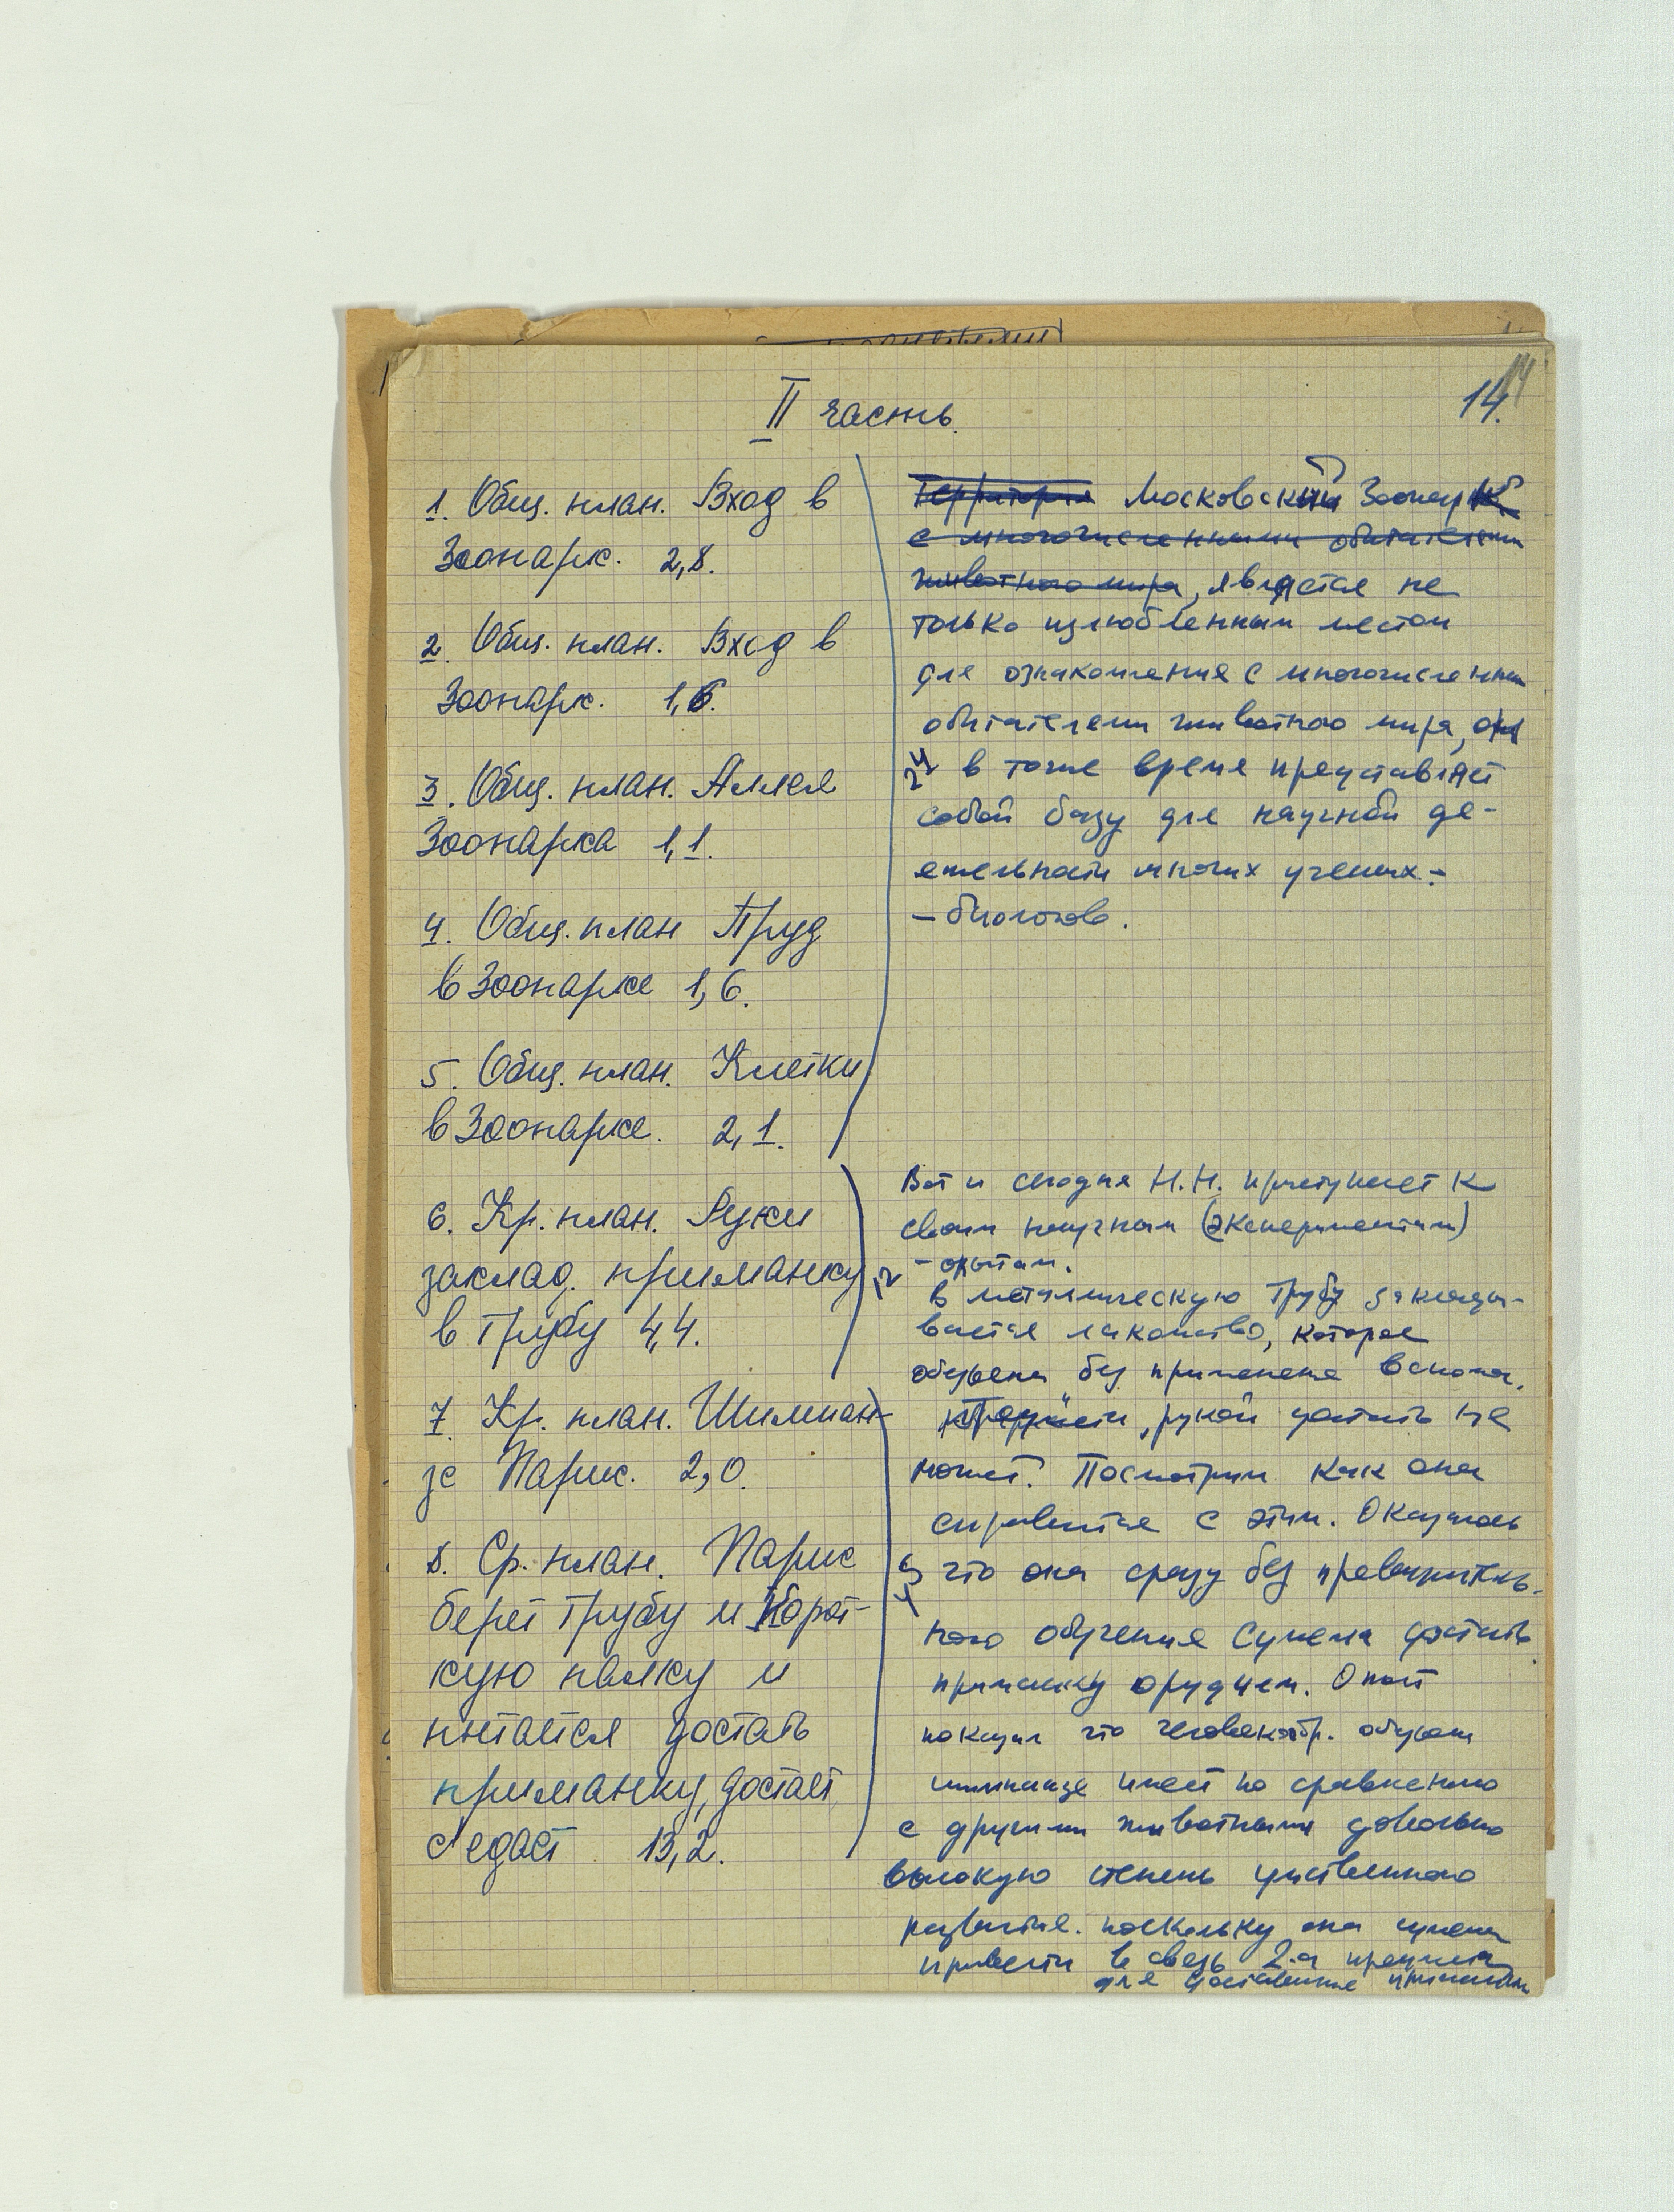 14.
II часть.
1. Общ. план. Вход в
Зоопарк. 2,8.
2. Общ. план. Вход в
Зоопарк. 1,6.
3. Общ. план. Аллея
Зоопарка 1,1.
4. Общ. план Пруд
в Зоопарке 1,6.
5. Общ. план. Клетки
в Зоопарке. 2,1.
6. Кр. план. Руки
заклад. приманку
в трубу 4,4.
7. Кр. план. Шимпан-
зе Парис. 2,0.
8. Ср. план. Парис
берет трубу и корот-
кую палку и
пытается достать
приманку, достает,
с'едает 13,2.
Территория Московский Зоопарк
с многочисленными обитателями
животного мира, является не
только излюбленным местом
для ознакомления с многочисленными
обитателями животного мира, он
24 в тоже время представляет
собой базу для научной де-
ятельности многих ученых-
-биологов.
Вот и сегодня Н.Н. приступает к
своим научным (экспериментам)
-опытам.
12
в металлическую трубу заклады-
вается лакомство, которое
обезьяна без применения вспомог.
, рукой достать не
может. Посмотрим как она
справится с этим. Оказалось
что она сразу без предваритель-
ного обучения сумела достать
приманку орудием. Опыт
показал что человекообр. обезьяна
шимпанзе имеет по сравнению
с другими животными довольно
высокую степень умственного
развития. поскольку она сумела
привести в связь 2-а предмета
для доставания приманки